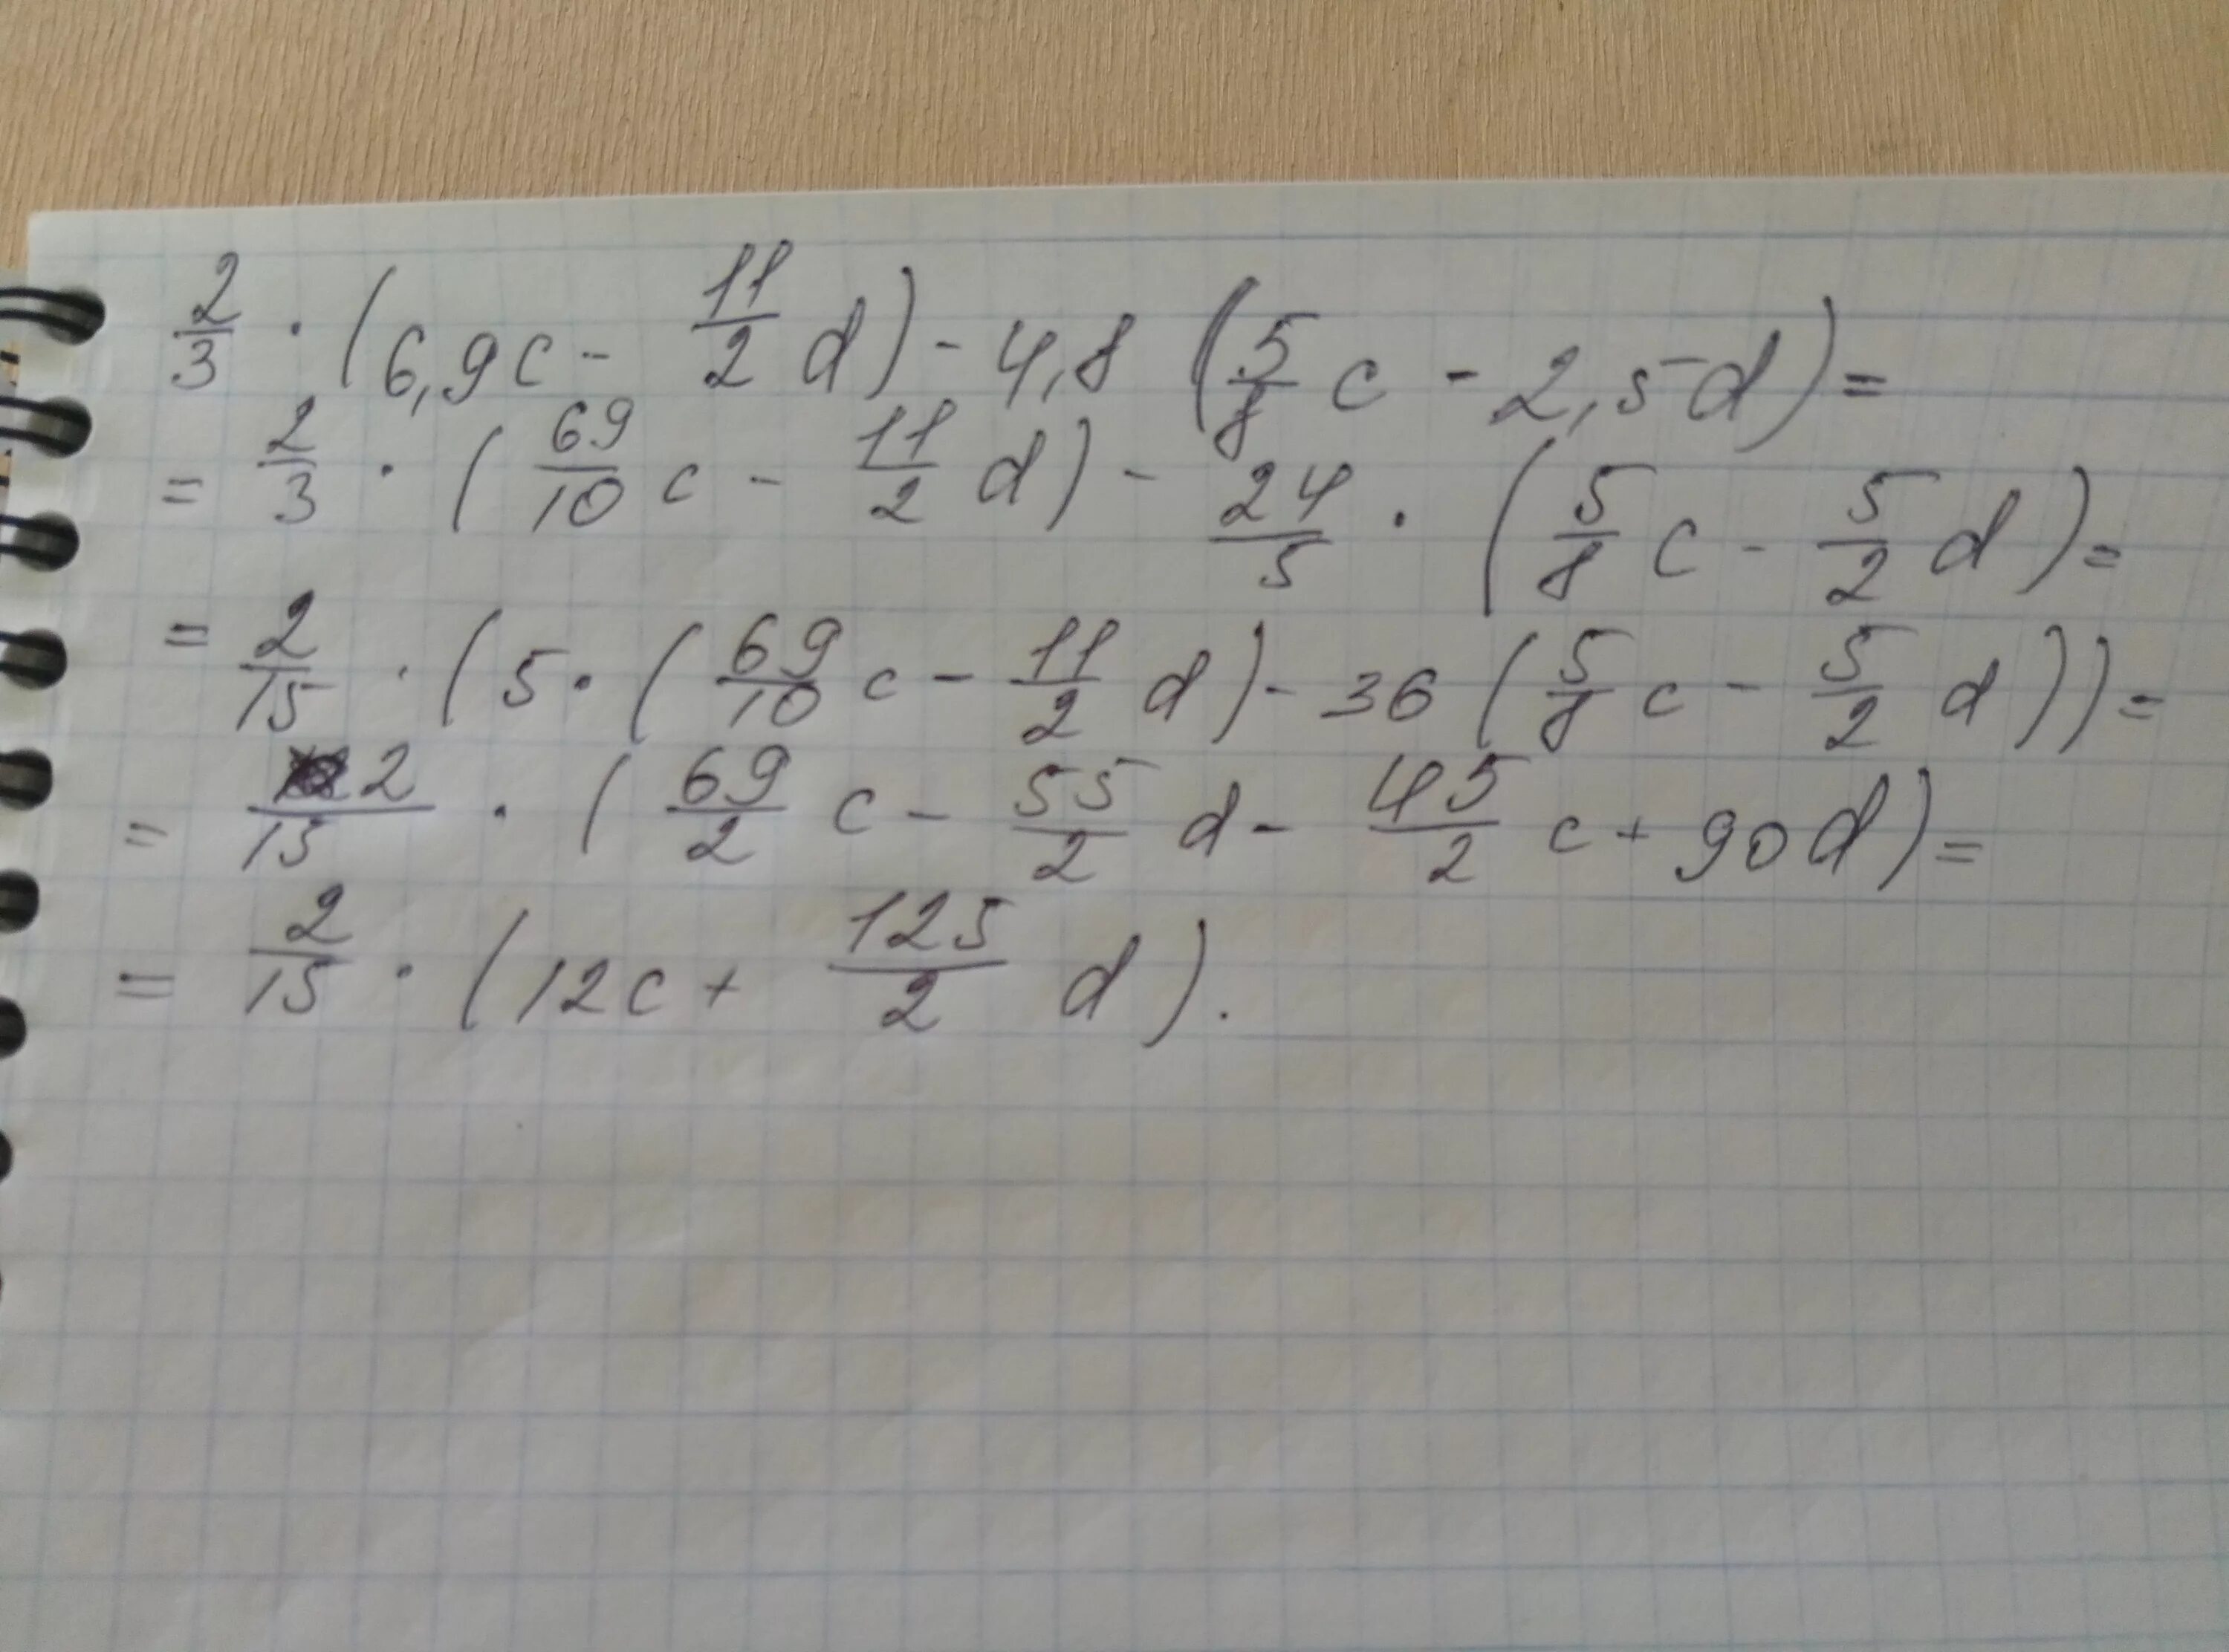 2/3 · (6,9c - 11/2 d) - 4,8 (5/8 c - 2,5d) =
= 2/3 · (69/10 c - 11/2 d) - 24/5 · (5/8 c - 5/2 d) =
= 2/15 · (5 · (69/10 c - 11/2 d) - 36 (5/8 c - 5/2 d)) =
= 2/15 · (69/2 c - 55/2 d - 45/2 c + 90d) =
= 2/15 · (12c + 125/2 d).